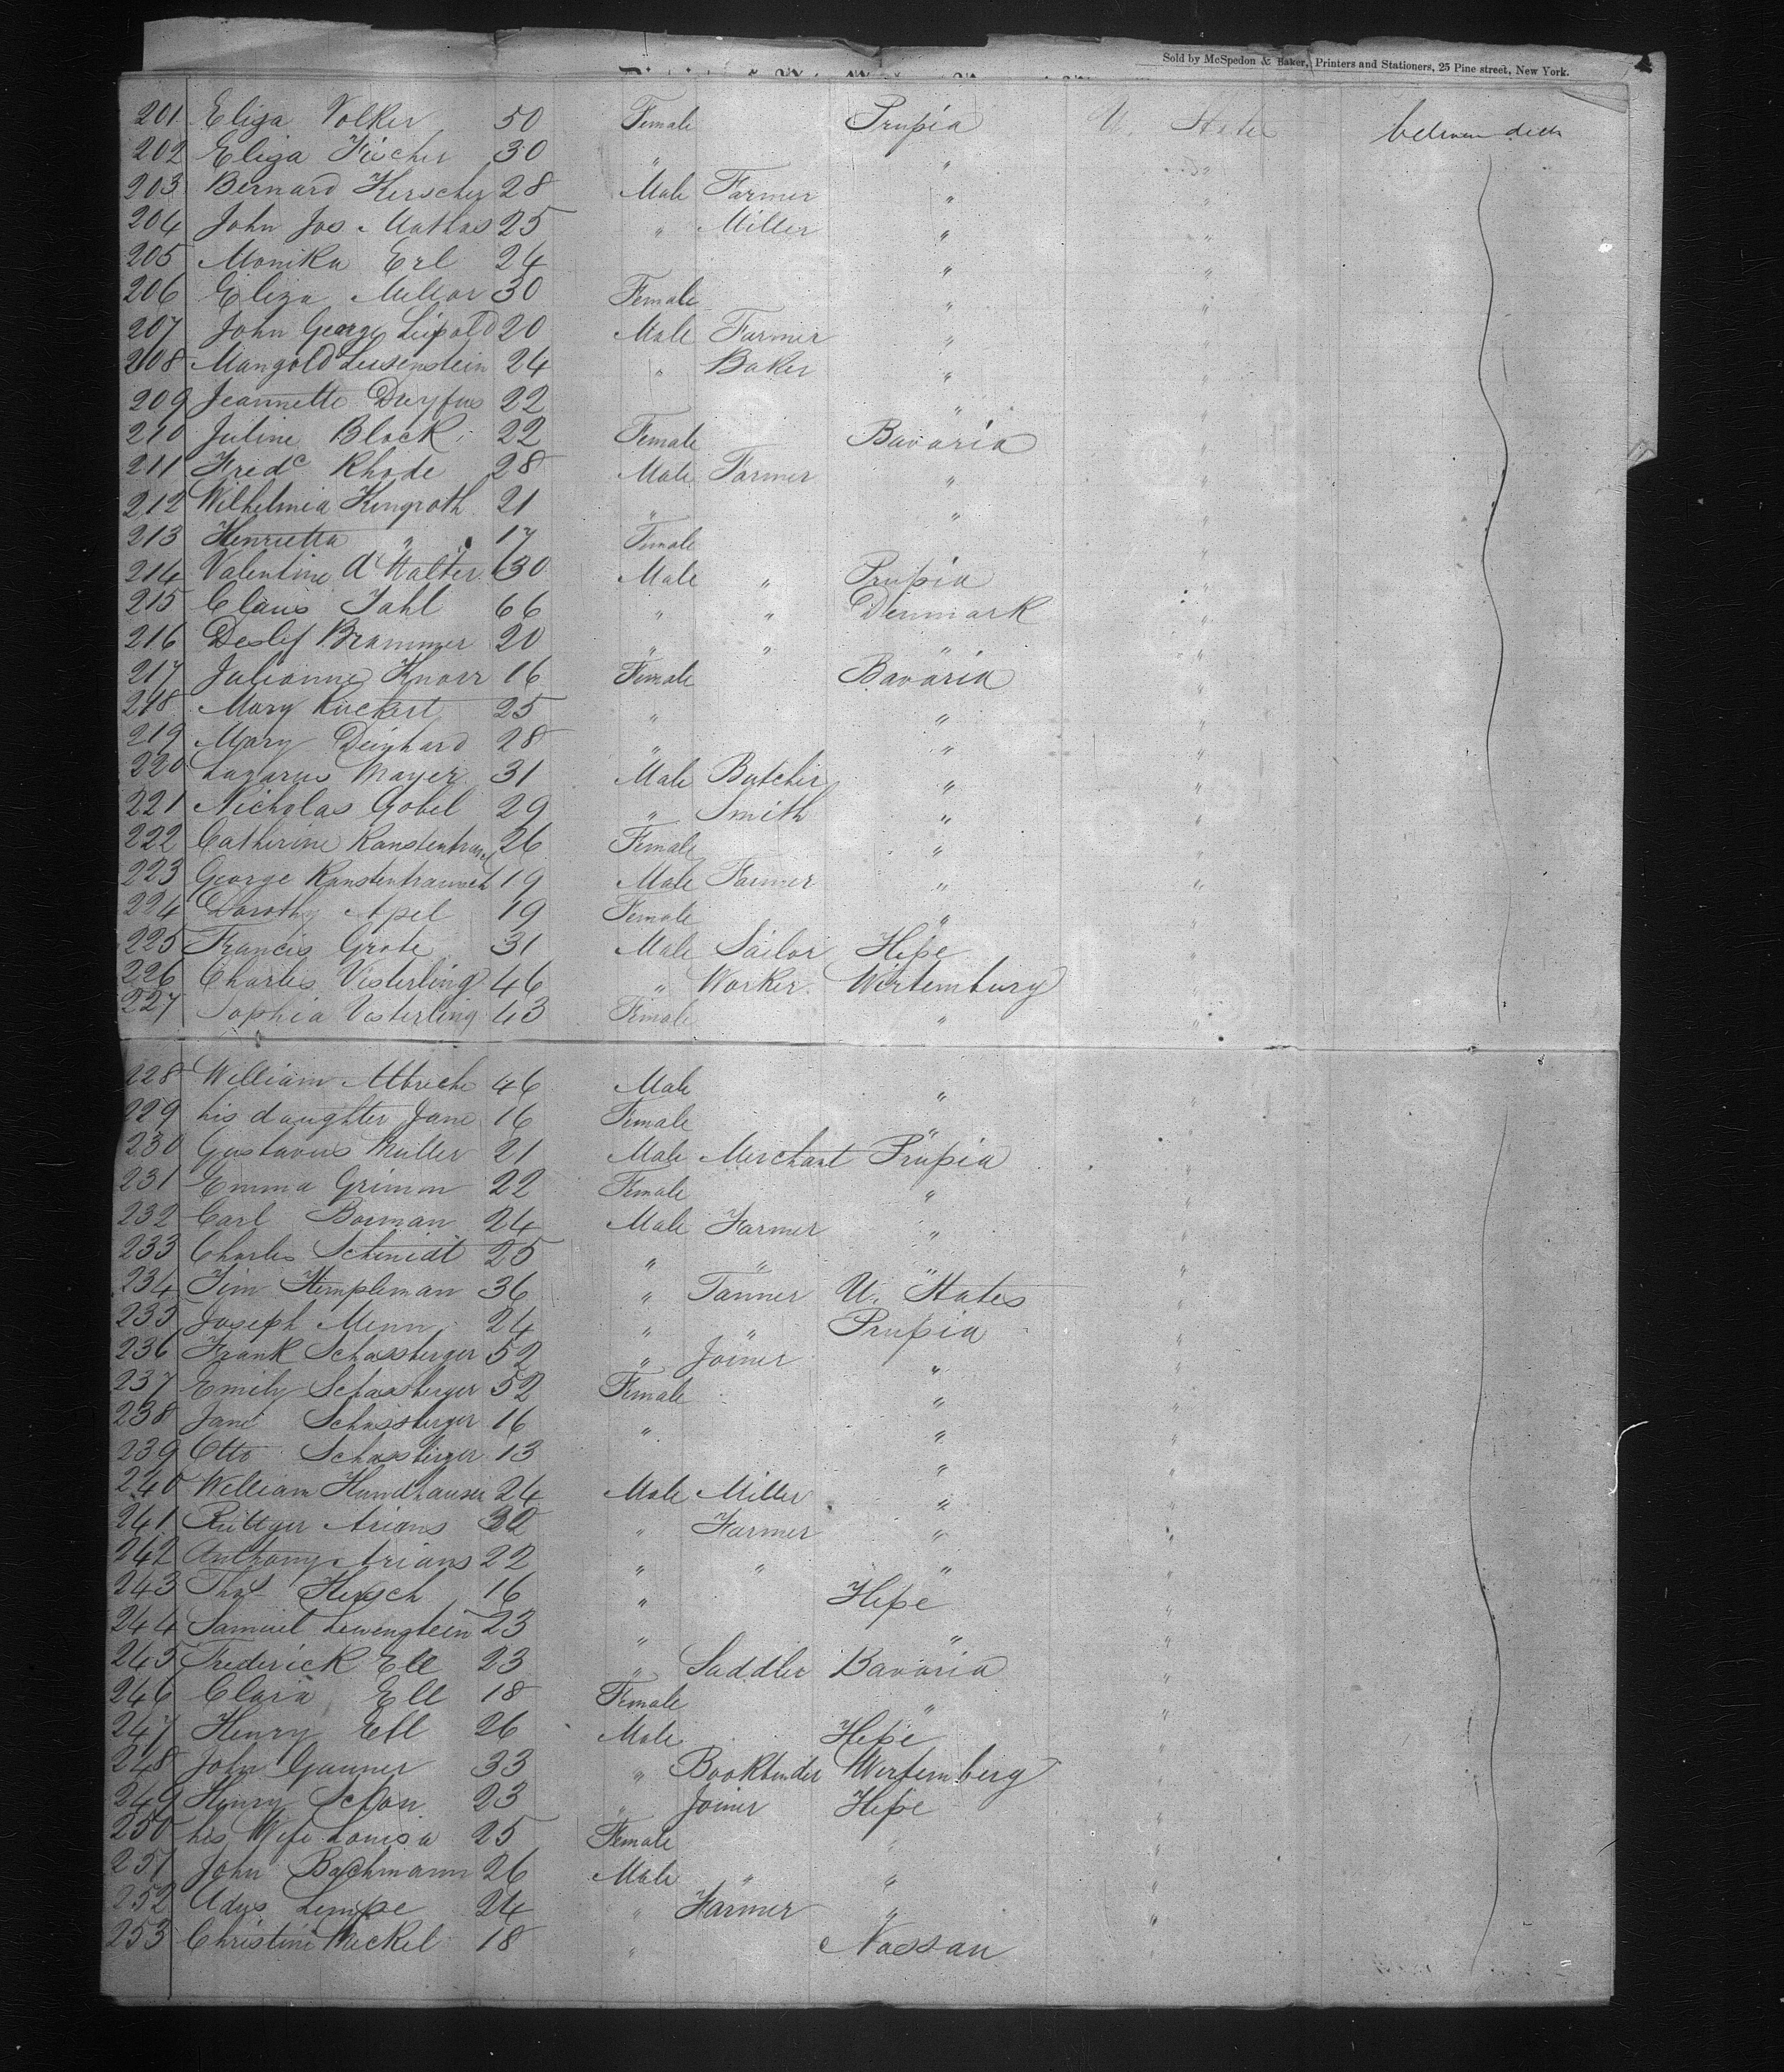 Sold by McSpedon & Baker, Printers and Stationers, 25 Pine street, New York.
201 Eliza Volker 50 Female Prußia U. States between decks
202 Eliza Fischer 30 " " "
203 Bernard Herscher 28 Male Farmer " "
204 John Jos Mathas 25 " Miller " "
205 Monika Erl 24 " "
206 Eliza Mellor 30 Female " "
207 John George Leipold 20 Male Farmer " "
208 Mangold Leisenstein 24 " Baker " "
209 Jeannette Dreyfus 22 " "
210 Juline Block 22 Female Bavaria "
211 Fredc Rhode 28 Male Farmer " "
212 Wilhelmia Kingroth 21 " " "
213 Henrietta " 17 Female "
214 Valentine A Walter 30 Male " Prußia "
215 Claus Jahl 66 " " Denmark "
216 Deslef Brammer 20 " " " "
217 Julianne Knorr 16 Female Bavaria "
218 Mary Ruckert 25 " " "
219 Mary Deinhard 28 " " "
220 Lazarus Mayer 31 Male Butcher " "
221 Nicholas Gobel 29 " Smith " "
222 Catherine 26 Female " "
223 George 19 Male Farmer " "
224 Dorothy Apel 19 Female " "
225 Francis Grote 31 Male Sailor Heße "
226 Charles Visterling 46 " Worker Wirtemburg "
227 Sophia Visterling 43 Female " "
228 William Albrech 46 Male " "
229 his daughter Jane 16 Female " "
230 Gustavus Muller 21 Male Merchant Prußia "
231 Emma Grimm 22 Female " "
232 Carl Borman 24 Male Farmer " "
233 Charles Schmidt 25 " " " "
234 Jim Hempleman 36 " Tanner U. States "
235 Joseph Menn 24 " " Prußia "
236 Frank Schassberger 52 " Joiner " "
237 Emily Schassberger 52 Female " "
238 Jane Schassberger 16 " " "
239 Otto Schassberger 13 " "
240 William Hundhausen 24 Male Miller " "
241 Rüttger Arians 32 " Farmer " "
242 Anthony Arians 22 " " " "
243 Hersch 16 " Heße "
244 Samuel Lewenstein 23 " " "
245 Frederick Ell 23 " Saddler Bavaria "
246 Clara Ell 18 Female " "
247 Henry Ell 26 Male Heße "
248 John Gauner 33 " Bookbinder Wirtemberg "
249 Henry Schon 23 " Joiner Heße "
250 his Wife Louisa 25 Female " "
251 John Bachmann 26 Male " " "
252 Lempe 24 " Farmer " "
253 Christine Meckel 18 " Nassau "